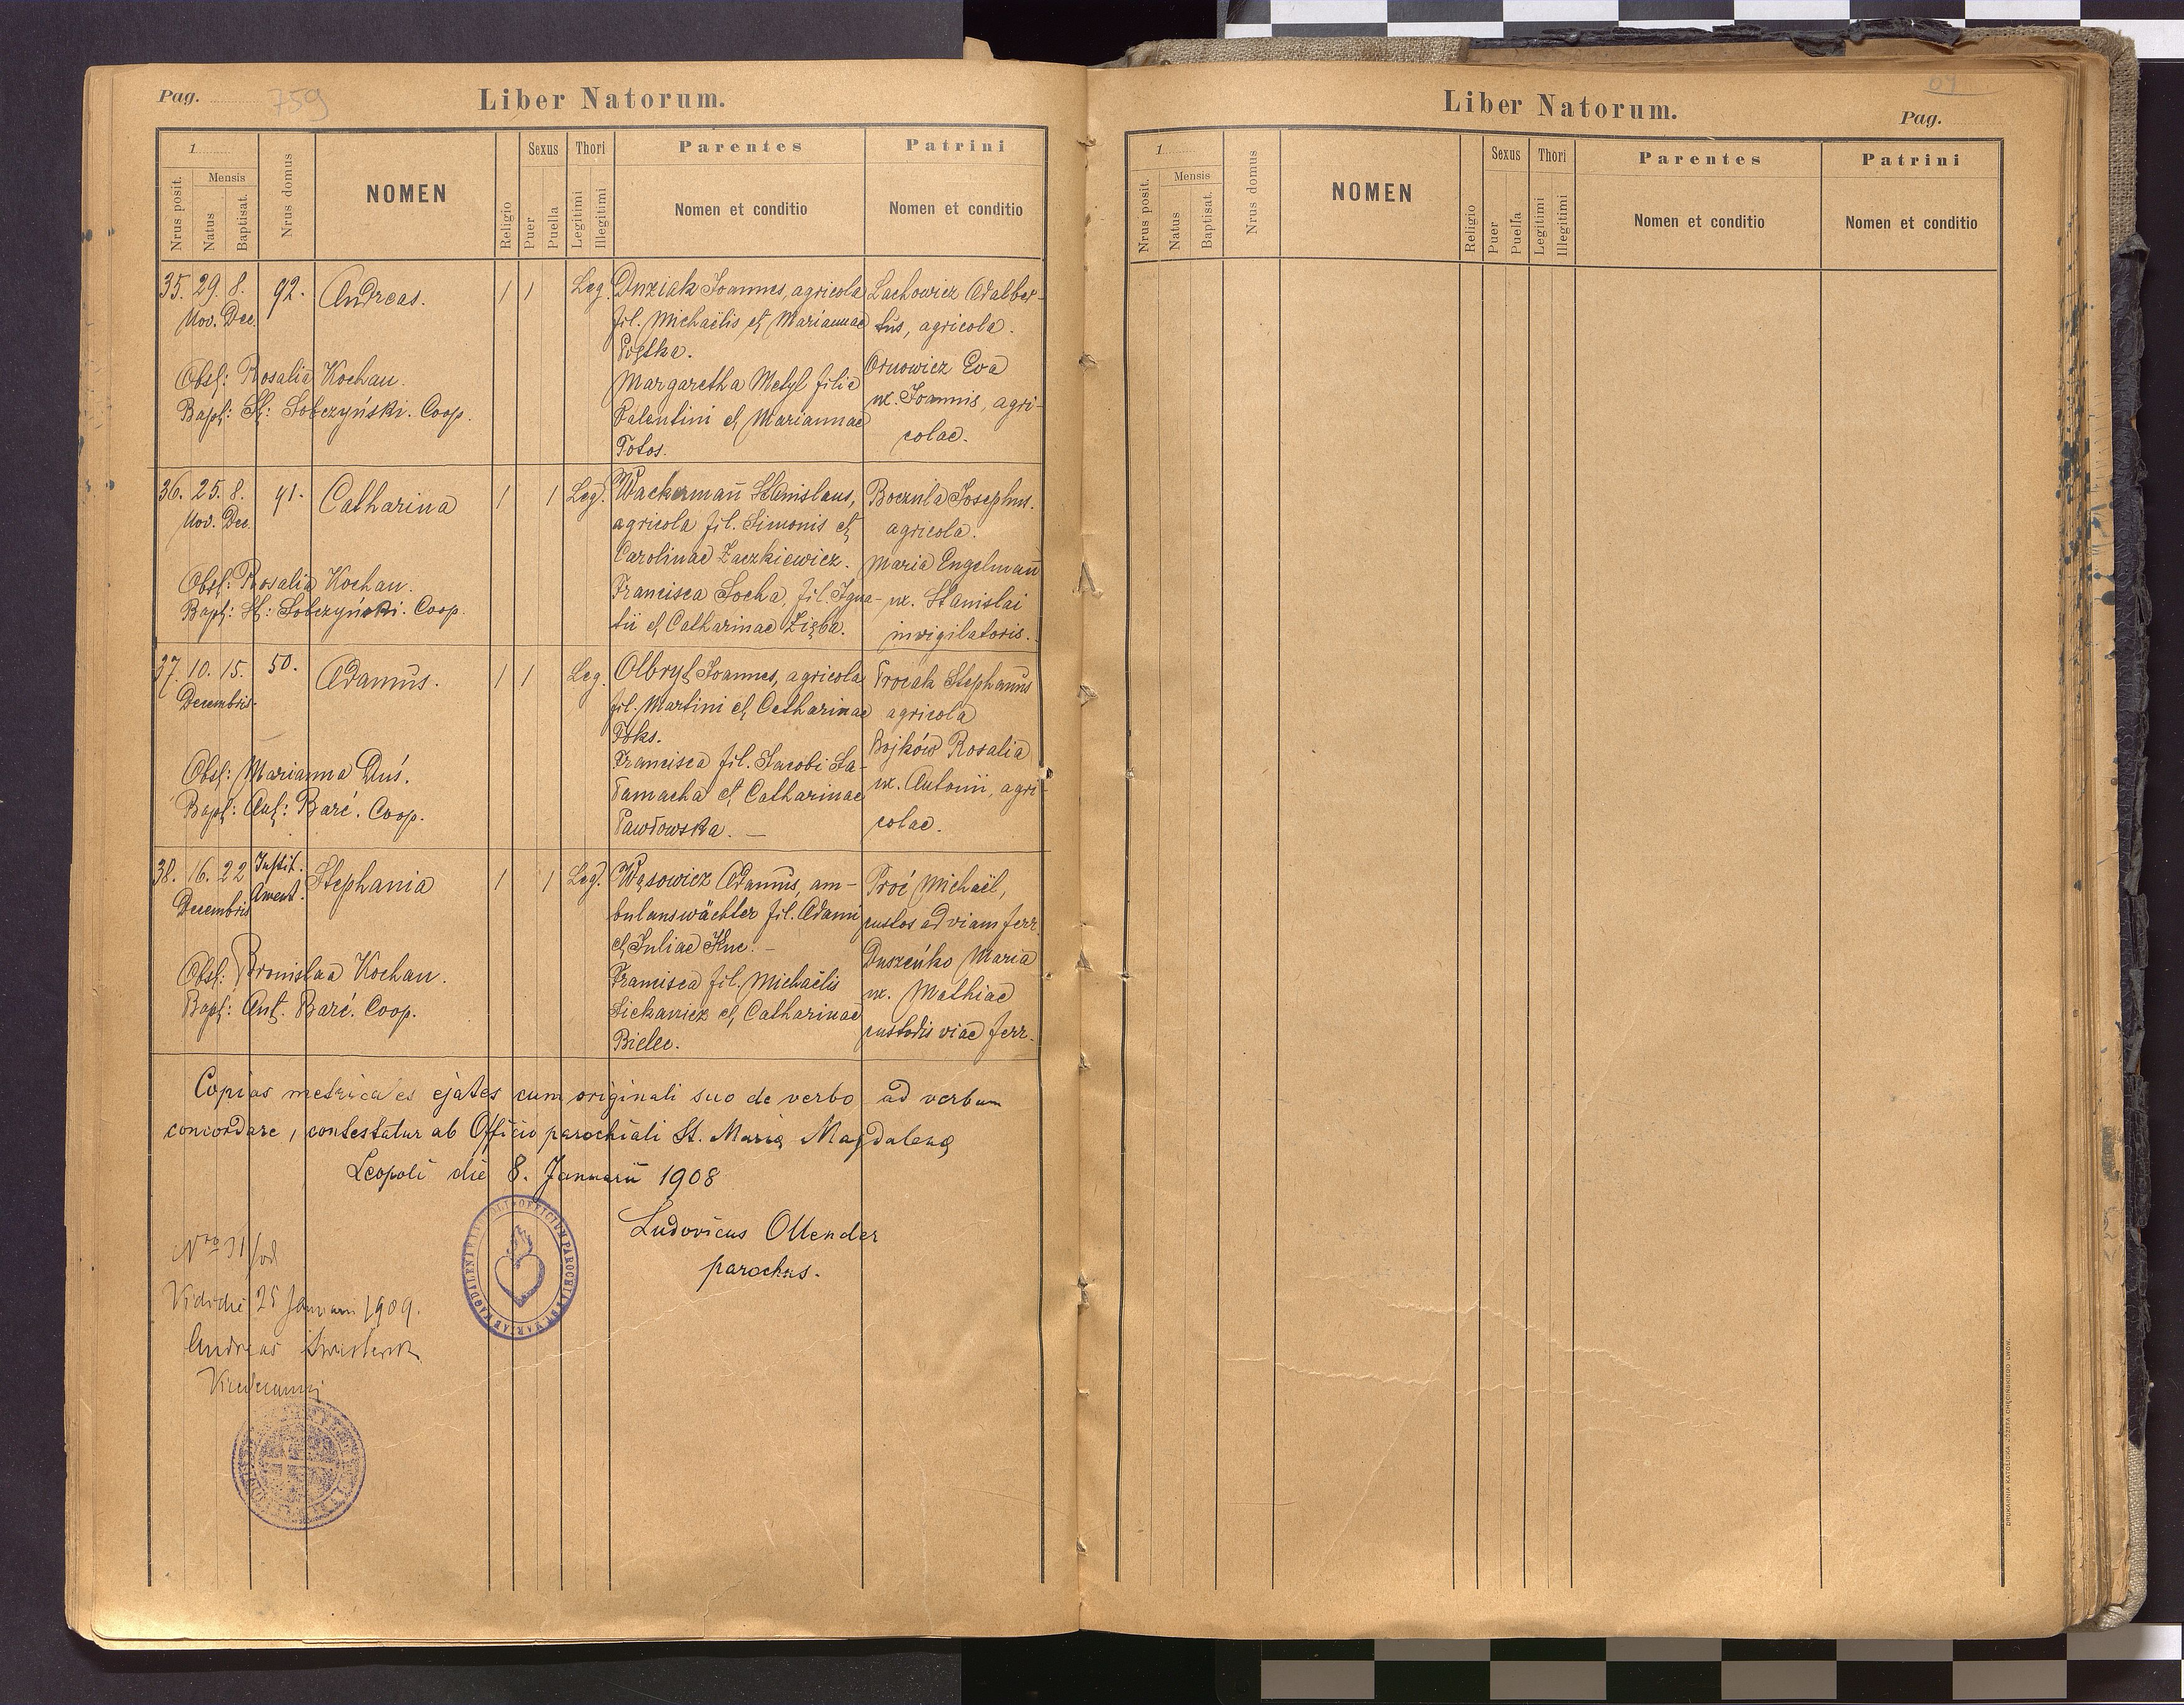 Pag. 759
Liber Natorum.
1
Nrus posit.
Mensis
Natus
Baptisat.
Nrus domus
NOMEN
Religio
Sexus
Puer
Puella
Thori
Legitimi
Illegitimi
Parentes
Nomen et conditio
Patrini
Nomen et conditio
35. 29. 8. 92. Andreas. 1 1 Leg.
Nov. Dec.
Obst: Rosalia Kochan.
Bapt: St: Sobczyński. Coop.
Duziak Joannes, agricola
fil. Michaëlis et Mariannae
Margaretha Metyl filia
Valentini et Mariannae
Totos.
Lachowicz Adalber-
tus, agricola.
Ornowicz Eva
ux. Joannis, agri-
colae.
36. 25. 8. 91. Catharina 1 1 Leg.
Nov. Dec.
Obst: Rosalia Kochan.
Bapt: St: Sobczyński. Coop.
Wackermañ Stanislaus,
agricola fil. Simonis et
Carolinae Zaczkiewicz.
Francisca Socha, fil. Igna-
tii et Catharinae Zięba.
Boczula Josephus.
agricola.
Maria Engelmañ
ux. Stanislai
invigilatoris.
37. 10. 15. 50. Adamus. 1 1 Leg.
Decembris.
Obst: Marianna Duś.
Bapt: Ant: Barć. Coop.
Olbryt Joannes, agricola
fil. Martini et Catharinae
Foks.
Francisca fil. Jacobi Sa-
łamacha et Catharinae
Pawłowska. —
Procak Stephanus
agricola
Bojków Rosalia
ux. Antonii, agri-
colae.
38. 16. 22 Instit. Stephania 1 1 Leg.
Decembris Ament.
Obst: Bronislaa Kochan.
Bapt: Ant. Barć. Coop.
Wąsowicz Adamus, am-
bulanswächter fil. Adami
et Juliae Kuc. —
Francisca fil. Michaëlis
Sickanicz et Catharinae
Bielec.
Proć Michaël,
custos ad viam ferr.
Duszeńko Maria
ux. Mathiae
custodis viae ferr.
Copias metricales ejates cum originali suo de verbo ad verbum
concordare, contestatur ab Officio parochiali St. Mariæ Magdalenæ
Leopoli die 8. Januarii 1908
Ludovicus Ollender
parochus.
OFFICIUM PAROCHIALE MARIAE MAGDALENAE
Nro 31/08
Vidi die 25 Januarii 1909.
Andreas
Liber Natorum.
Pag.
1
Nrus posit.
Mensis
Natus
Baptisat.
Nrus domus
NOMEN
Religio
Sexus
Puer
Puella
Thori
Legitimi
Illegitimi
Parentes
Nomen et conditio
Patrini
Nomen et conditio
DRUKARNIA KATOLICKA JÓZEFA CHĘCIŃSKIEGO LWÓW.